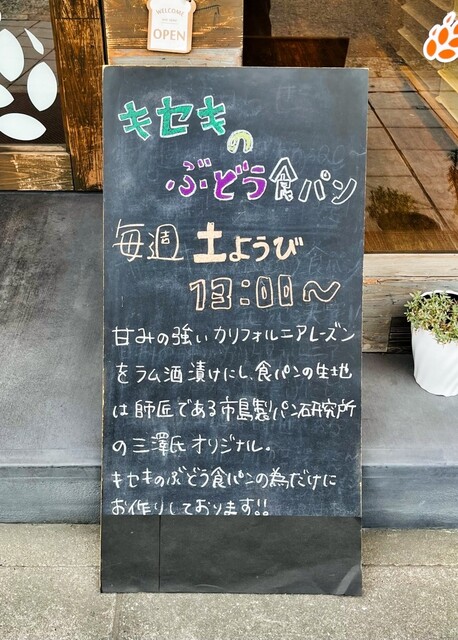 WELCOME
OPEN
キセキ
の
ぶどう食パン
毎週 土ようび
13:00〜
甘みの強いカリフォルニアレーズン
をラム酒漬けにし、食パンの生地
は師匠である市島製パン研究所
の三澤氏オリジナル。
キセキのぶどう食パンの為だけに
お作りしております!!